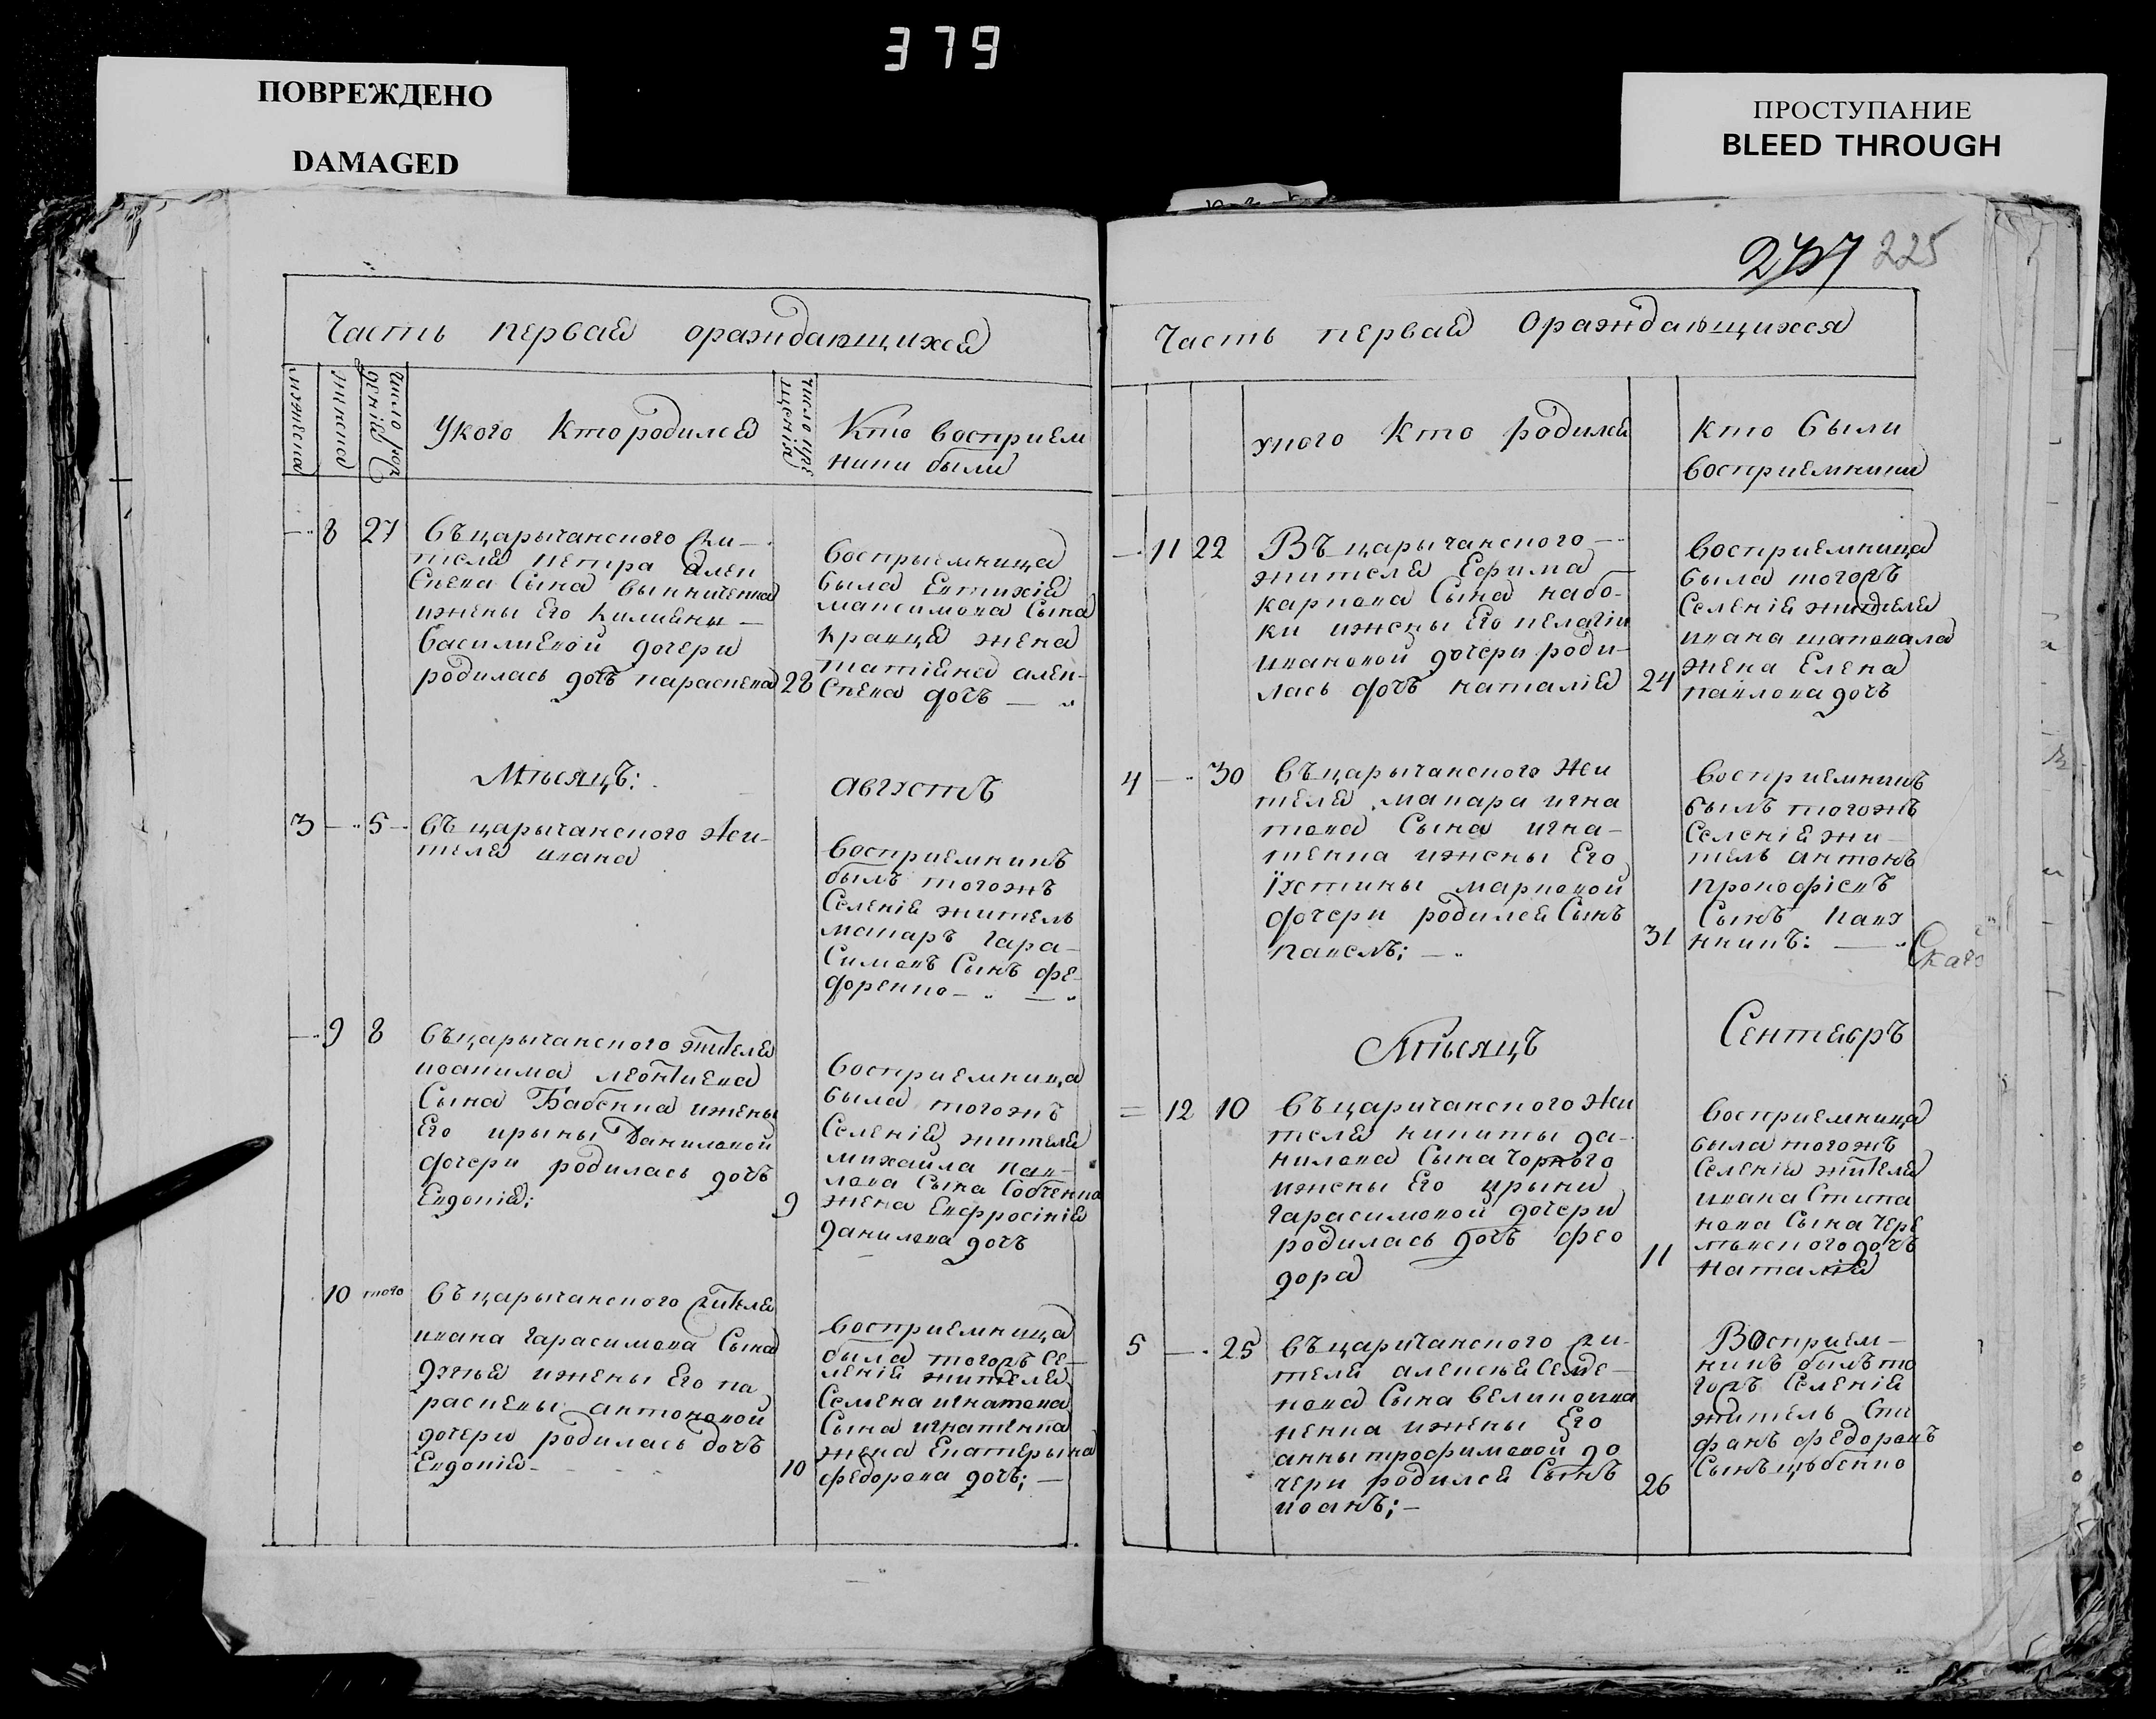 379
ПОВРЕЖДЕНО
DAMAGED
ПРОСТУПАНИЕ
BLEED THROUGH
Часть первая ораждающихся
мужеска
женска
число рож
денія
Укого Кто родился
число кре
щенія
Кто восприем
ники были
8 27
Въцарычанского жи-
теля петра алек
сеева Сына винниченка
ижены Его килияны
василиевой дочери
родилась дочъ параскева 28
восприемница
была Евтихія
максимова Сына
кравця жена
татіяна алек-
сеева дочъ
Мѣсяцъ:
августъ
3 5
въцарычанского жи-
теля ивана
восприемникъ
былъ тогожъ
Селенія житель
макаръ гара-
симовъ Сынъ фе-
доренко
9 8
въцарычанского жителя
иоакима леонтиева
Сына Бабенка ижены
Его ирыны Даниловой
дочери родилась дочъ
Евдокія; 9
восприемница
была тогожъ
Селенія жителя
михаила пав-
лова Сына Собченка
жена Евфросінія
данилова дочъ
10 того
въцарычанского жителя
ивана гарасимова Сына
ижены Его па
раскевы антоновой
дочери родилась дочъ
Евдокія 10
восприемница
была тогожъ Се-
ленія жителя
Семена игнатова
Сына игнатенка
жена Екатерына
федорова дочъ;
225
Часть первая Ораждающихся
укого Кто родился
кто были
восприемники
11 22
Въ царычанского
жителя Ефима
карпова Сына набо-
ки ижены Его пелагіи
ивановой дочери роди-
лась дочъ наталія 24
восприемница
была тогожъ
Селенія жителя
ивана шаповала
жена Елена
павлова дочъ
4 30
въцарычанского жи
теля макара игна
това Сына игна-
тенка ижены Его
їустины марковой
дочери родился Сынъ
павелъ; 31
восприемникъ
былъ тогожъ
Селенія жи-
тель антонъ
прокофіевъ
Сынъ
Мѣсяцъ
Сентябръ
12 10
въцаричанского жи
теля никиты да-
нилова Сына Чорного
ижены Его ирыни
гарасимовой дочери
родилась дочъ фео
дора 11
восприемница
была тогожъ
Селенія жителя
ивана Степа
нова Сына Чере
мѣвского дочъ
Наталія
5 25
въцаричанского жи-
теля алексѣя Семе-
нова Сына
ижены Его
анны трофимовой до
чери родился Сынъ
иоанъ; 26
Восприем-
никъ былъ то
гожъ Селенія
житель Сте
фанъ федоровъ
Сынъ